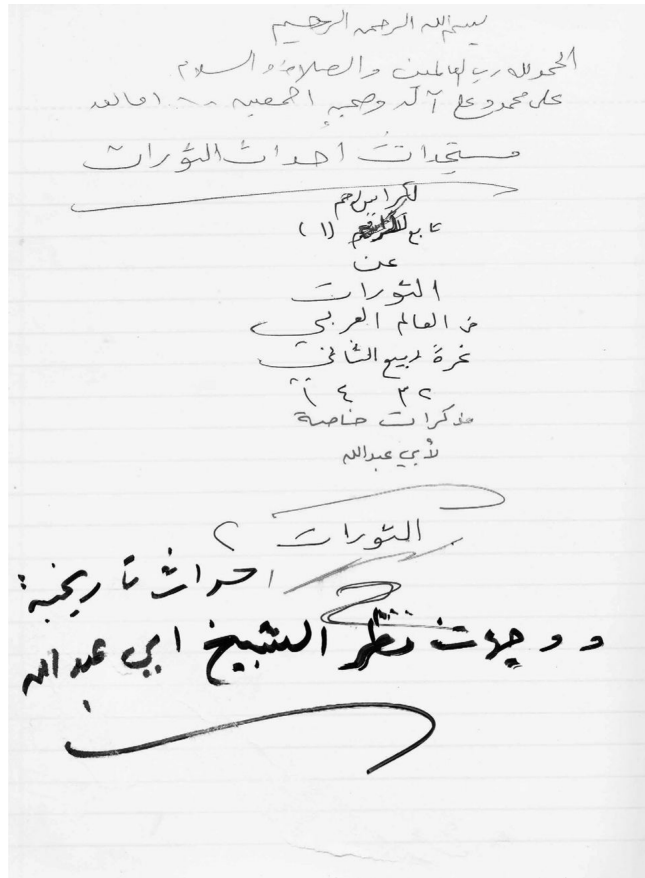 بسم الله الرحمن الرحيم
الحمد لله رب العالمين والصلاة والسلام
على محمد وعلى آله وصحبه اجمعين اما بعد
مستجدات أحداث الثورات
لكراس رقم
تابع (١)
عن
الثورات
في العالم العربي
غرة ربيع الثاني
١٤٣٢
مذكرات خاصة
لأبي عبدالله
الثورات ٢
احداث تاريخية:
ووجهات نظر الشيخ ابي عبد الله